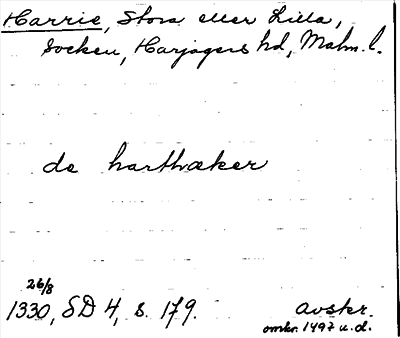 Harrie, Stora eller Lilla,
socken, Harjagers hd, Malm. l.
de harthæker
26/8
1330, SD 4, s. 179.
avskr.
omkr. 1497 u.d.